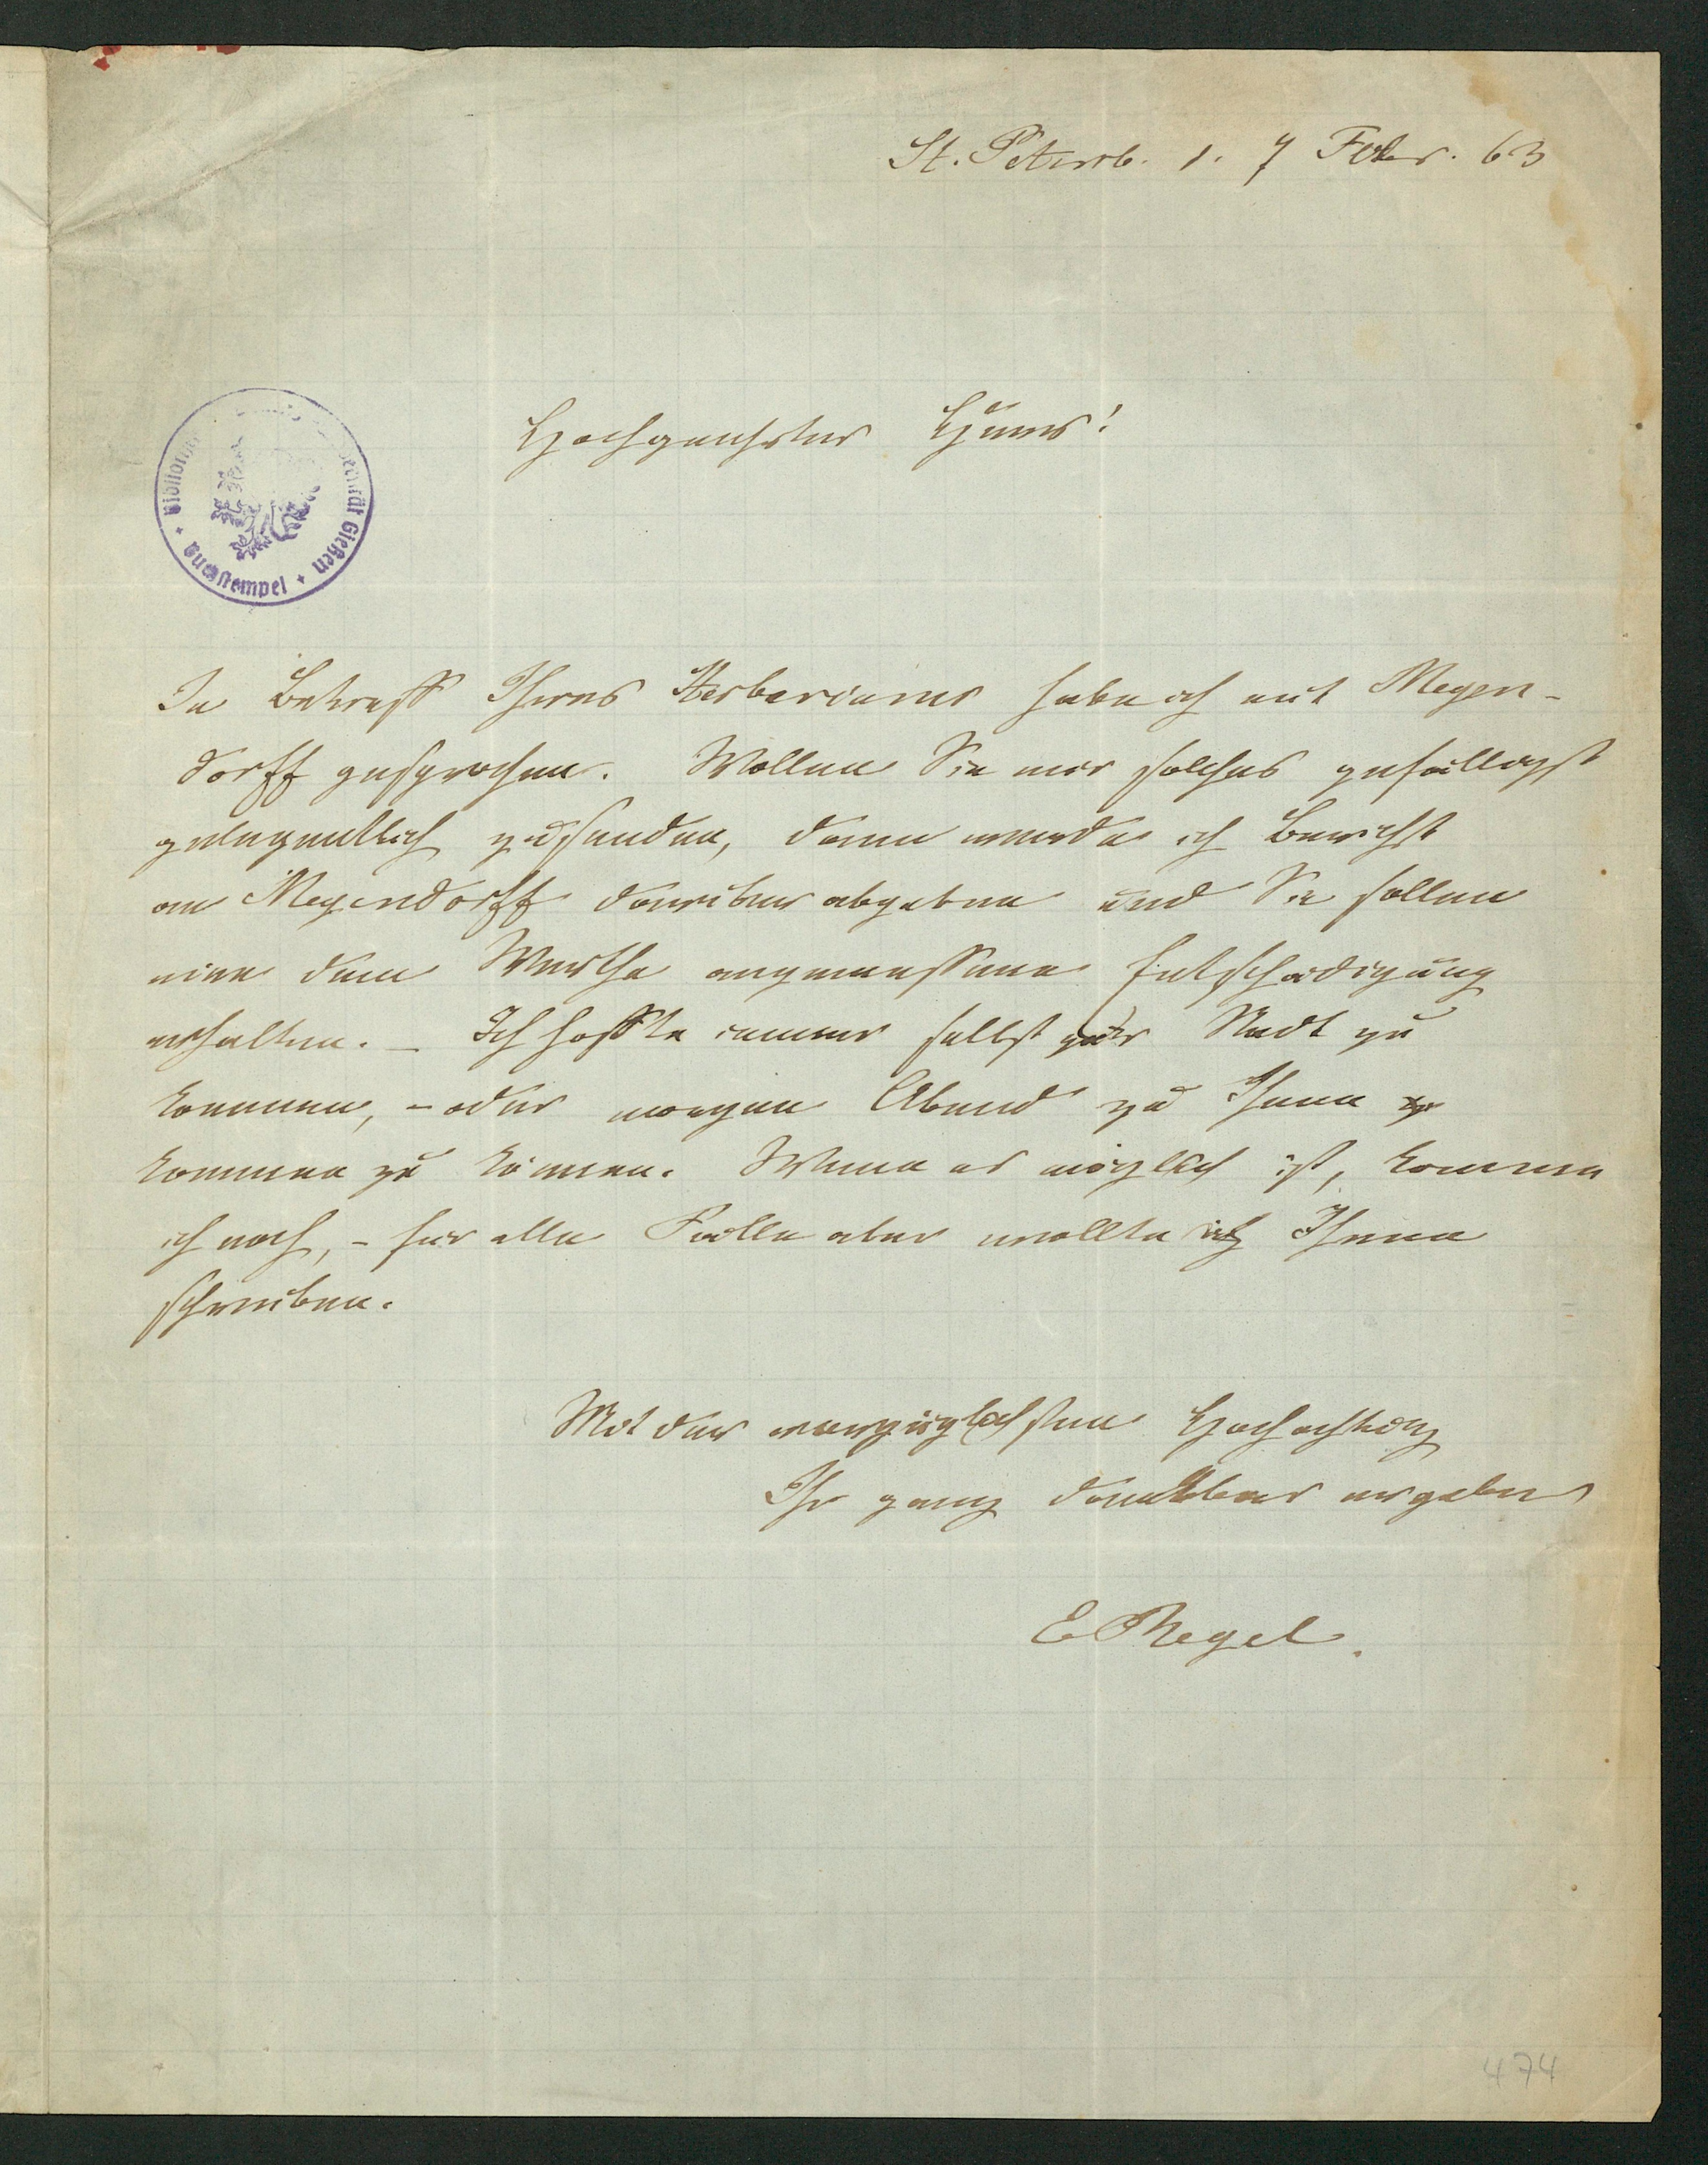 St. Petersb. d. 7 Febr. 63
Hochgeehrter Herr!
In Betreff Ihres Herbariums habe ich mit Meyen-
dorff gesprochen. Wollen Sie mir solches gefälligst
gelegentlich zusenden, dann werde ich Bericht
an Meyendorff darüber abgeben und Sie sollen
eine dem Werthe angemessene Entschädigung
erhalten. – Ich hoffte immer selbst zur Stadt zu
kommen, – oder morgen Abend zu Ihnen
kommen zu können. Wenn es möglich ist, komme
ich noch, – für alle Fälle aber wollte ich Ihnen
schreiben.
Mit der vorzüglichsten Hochachtung
Ihr ganz dankbar ergebener
E Regel.
Giessen
Buchstempel
474